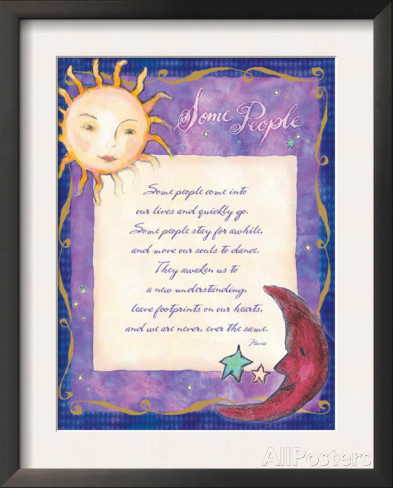 Some People
Some people come into
our lives and quickly go.
Some people stay for awhile,
and move our souls to dance.
They awaken us to
a new understanding,
leave footprints on our hearts,
and we are never, ever the same.
Flavia
AllPosters